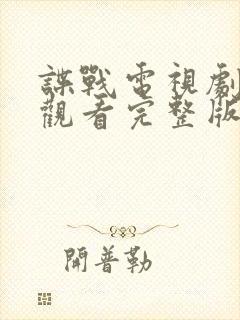 諜戰電視劇
觀看完整版
開普勒